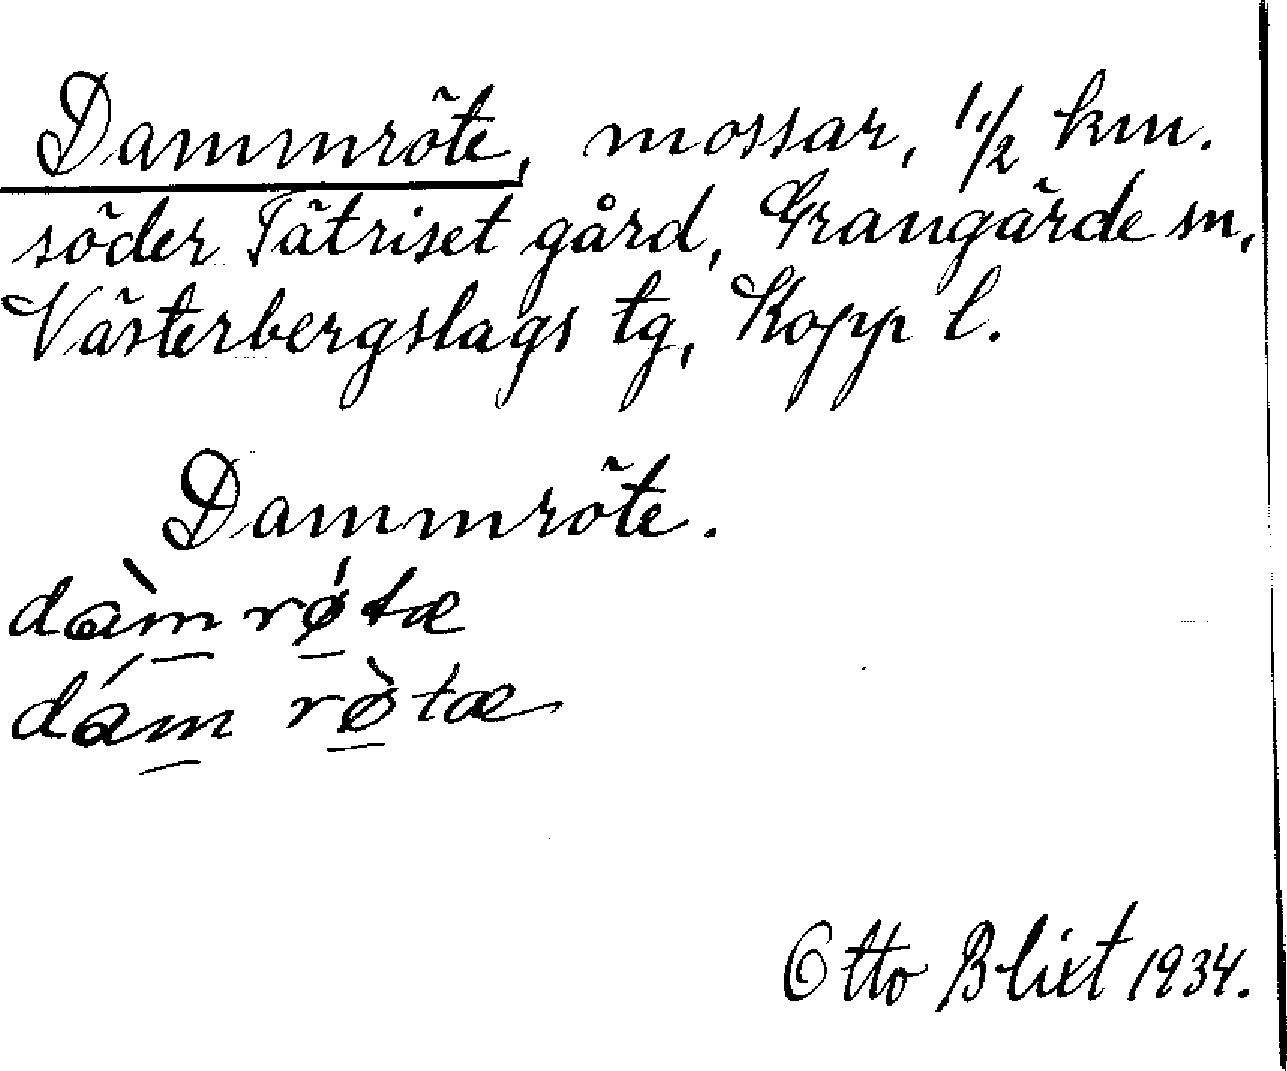 Dammröte, mossar, 1 1/2 km.
söder Tätriset gård, Grangärde sn,
Västerbergslags tg, Kopp l.
Dammröte.
dàm rǿtæ
dám rø̀tæ
Otto Blixt 1934.